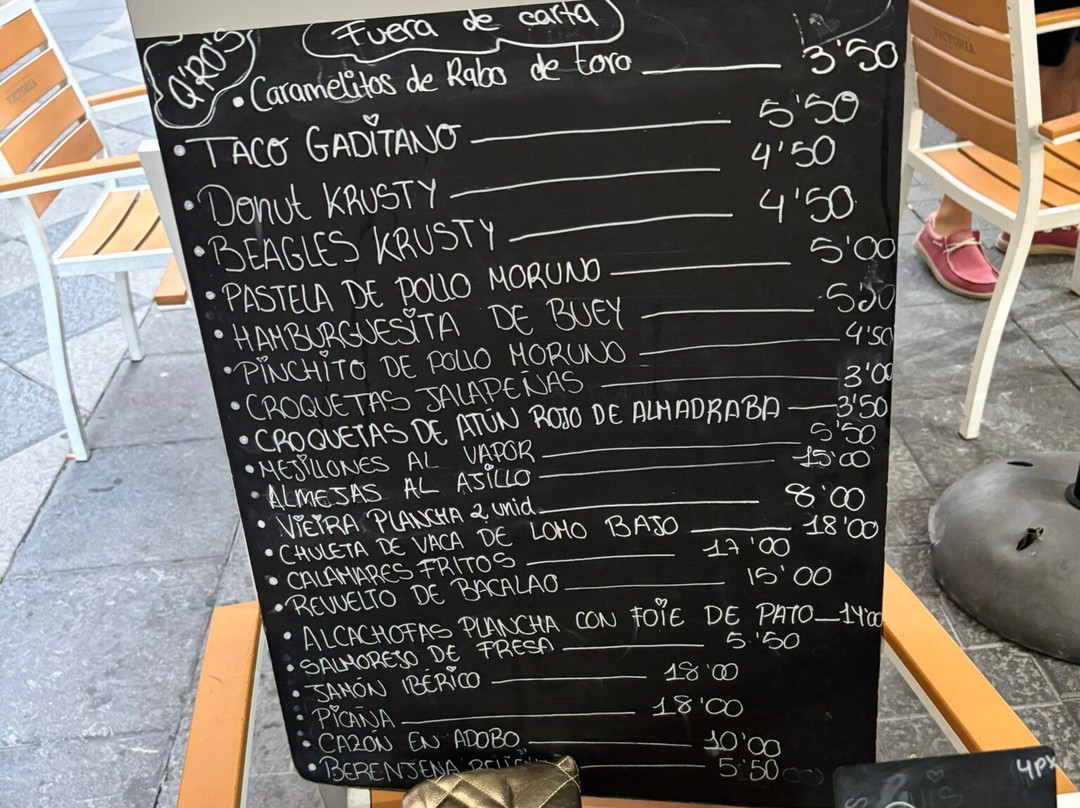 Fuera de carta
Q'RO'S
• Caramelitos de Rabo de toro 3'50
• TACO GADITANO 5'50
• Donut KRUSTY 4'50
• BEAGLES KRUSTY 4'50
• PASTELA DE POLLO MORUNO 5'00
• HAMBURGUESITA DE BUEY
• PINCHITO DE POLLO MORUNO 4'50
• CROQUETAS JALAPEÑAS 3'00
• CROQUETAS DE ATÚN ROJO DE ALMADRABA 3'50
• MEJILLONES AL VAPOR 5'50
• ALMEJAS AL AJILLO 15'00
• VIEIRA PLANCHA 2 unid. 8'00
• CHULETA DE VACA DE LOMO BAJO 18'00
• CALAMARES FRITOS 17'00
• REVUELTO DE BACALAO 15'00
• ALCACHOFAS PLANCHA CON FOIE DE PATO 14'00
• SALMOREJO DE FRESA 5'50
• JAMÓN IBÉRICO 18'00
• PICAÑA 18'00
• CAZÓN EN ADOBO 10'00
• BERENJENA 5'50
VICTORIA
VICTORIA